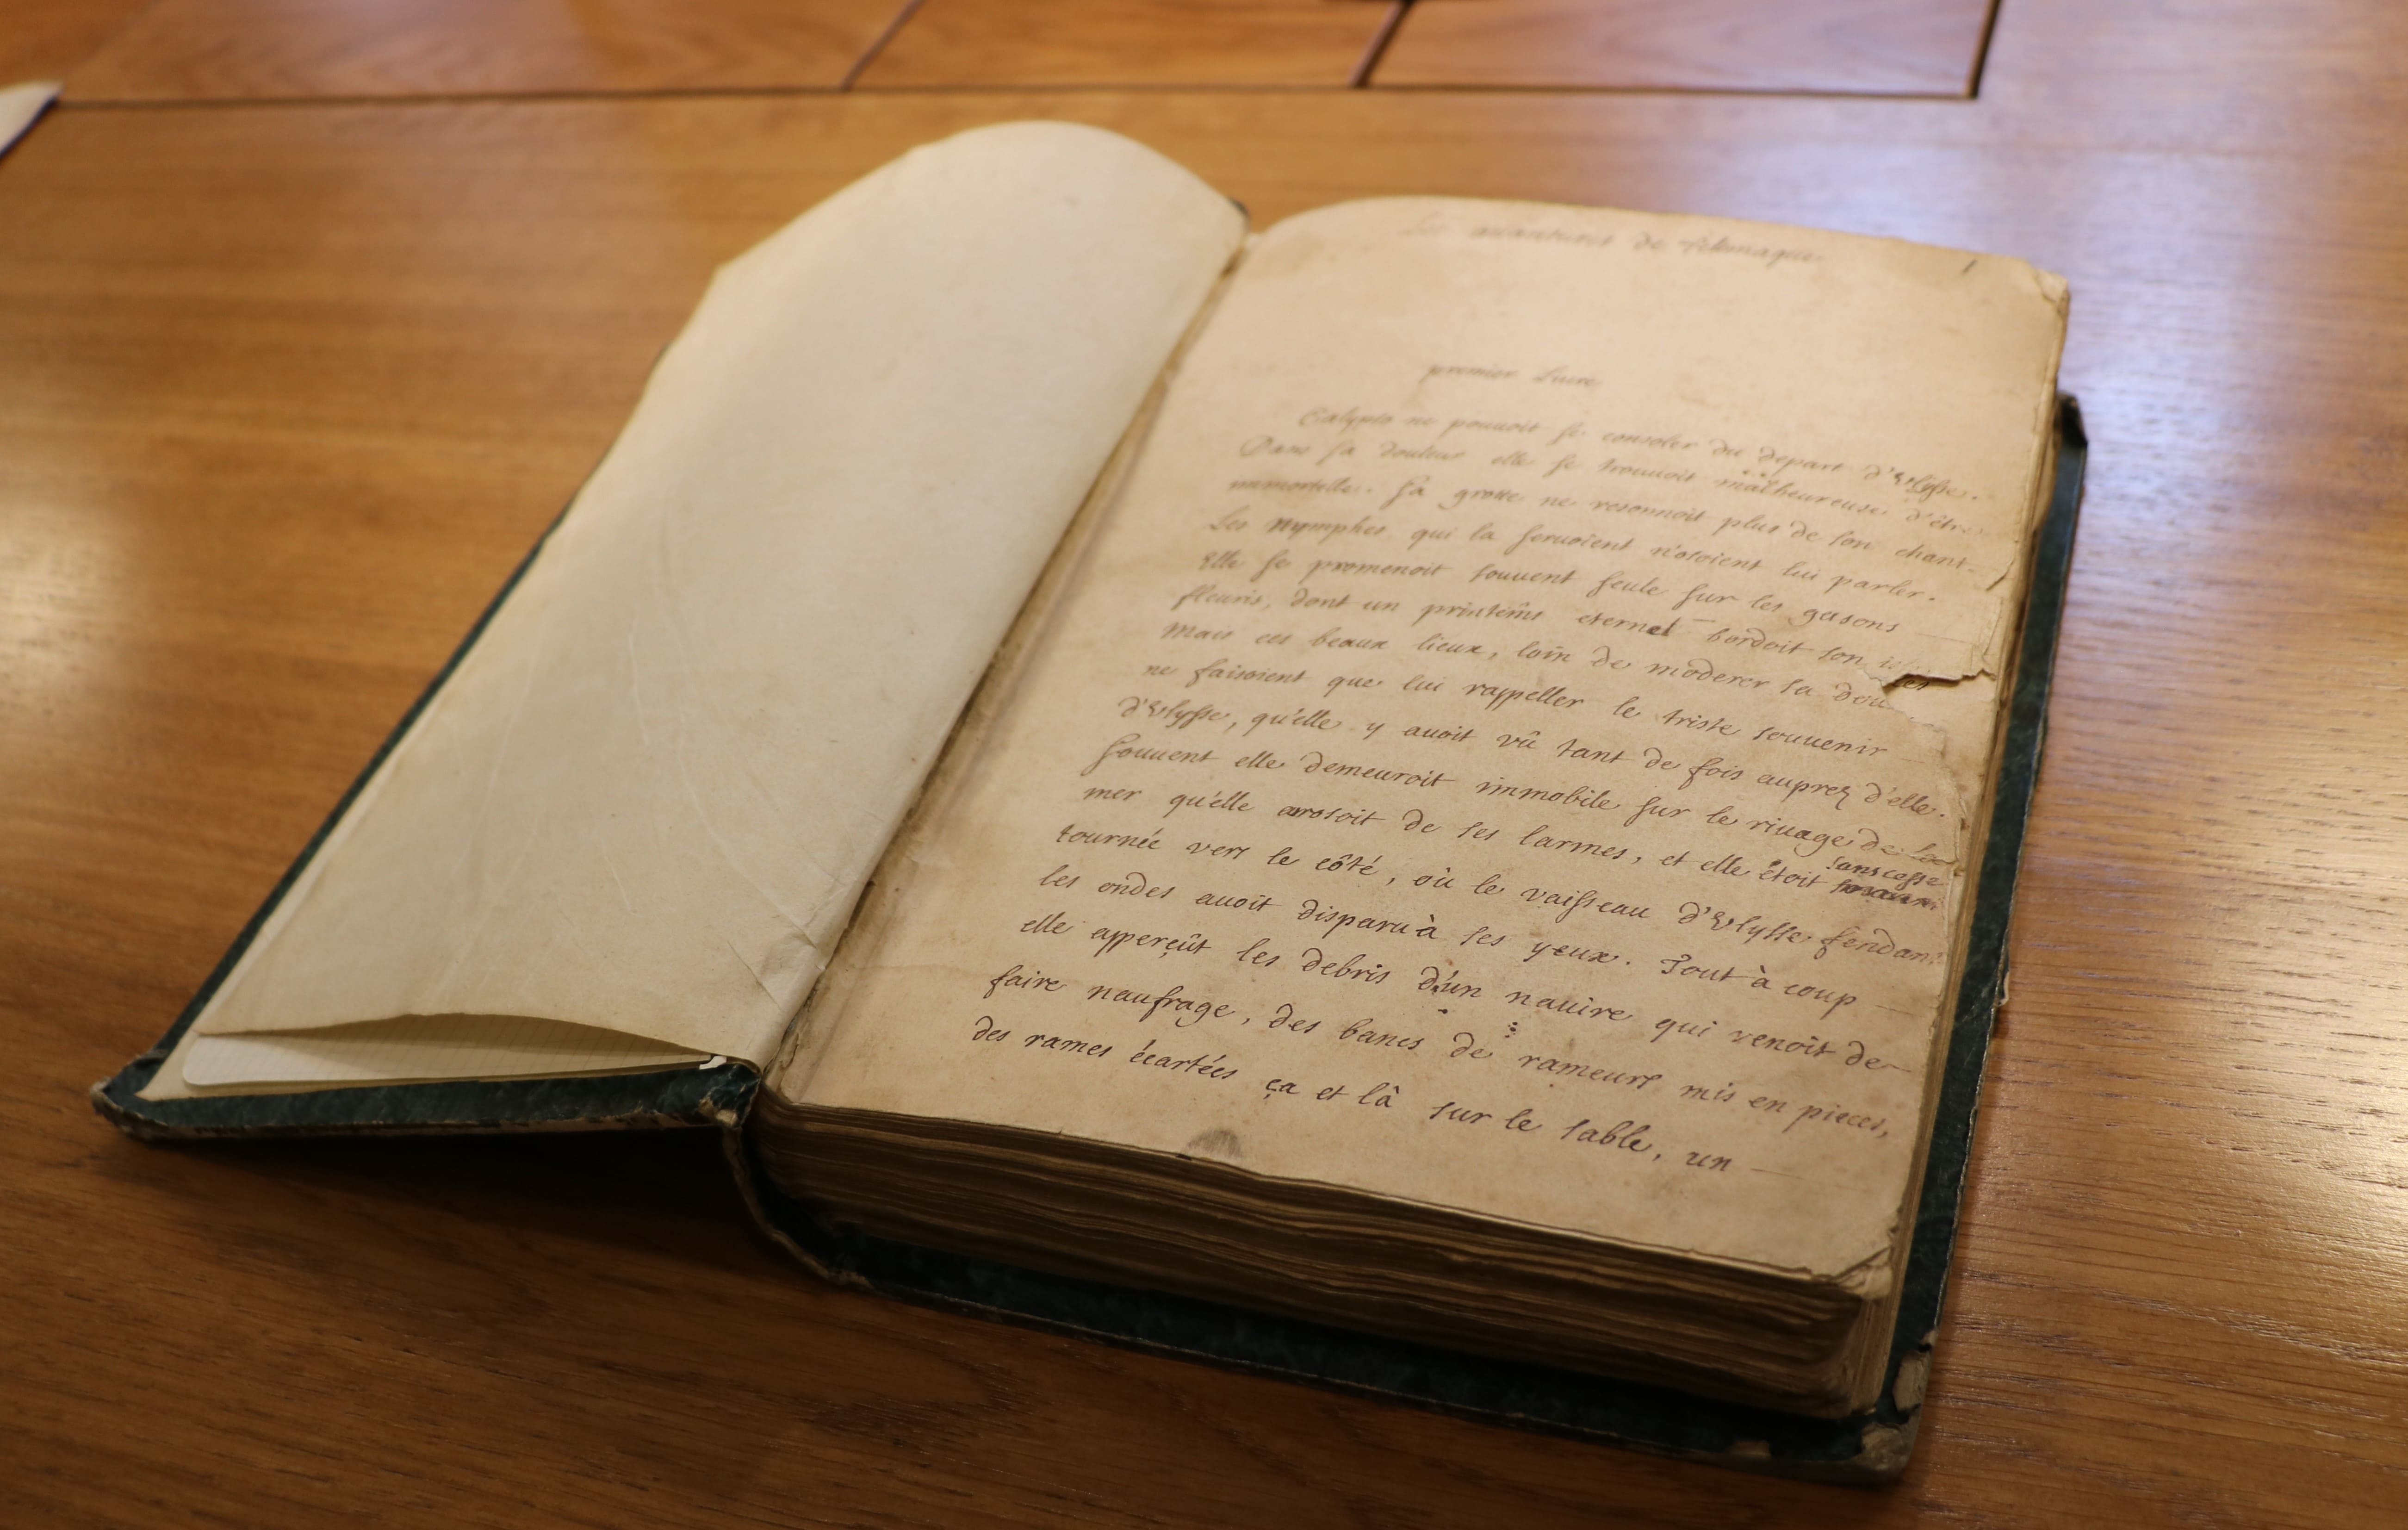 Les avantures de Telemaque 1
premier Livre
Calypso ne pouuoit se consoler du depart d'Vlysse.
Dans sa douleur elle se trouuoit malheureuse d'être
immortelle. Sa grotte ne resonnoit plus de son chant
Les Nymphes qui la seruoient n'osoient lui parler.
Elle se promenoit souuent seule sur les gasons
fleuris, dont un printems eternel bordoit son
Mais ces beaux lieux, loin de moderer sa
ne faisoient que lui rappeller le triste souuenir
d'Vlysse, qu'elle y auoit vû tant de fois auprez d'elle.
Souuent elle demeuroit immobile sur le riuage de la
mer qu'elle arrosoit de ses larmes, et elle étoit sans cesse
tournée vers le côté, où le vaisseau d'Vlysse fendant
les ondes auoit disparu à ses yeux. Tout à coup
elle apperçût les debris d'un nauire qui venoit de
faire naufrage, des bancs de rameurs mis en pieces,
des rames écartées ça et là sur le sable, un